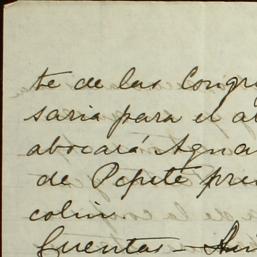 te de las Congre
saria para el a
abocará Agua
de Pepete pre
colin
Cuentas - Am